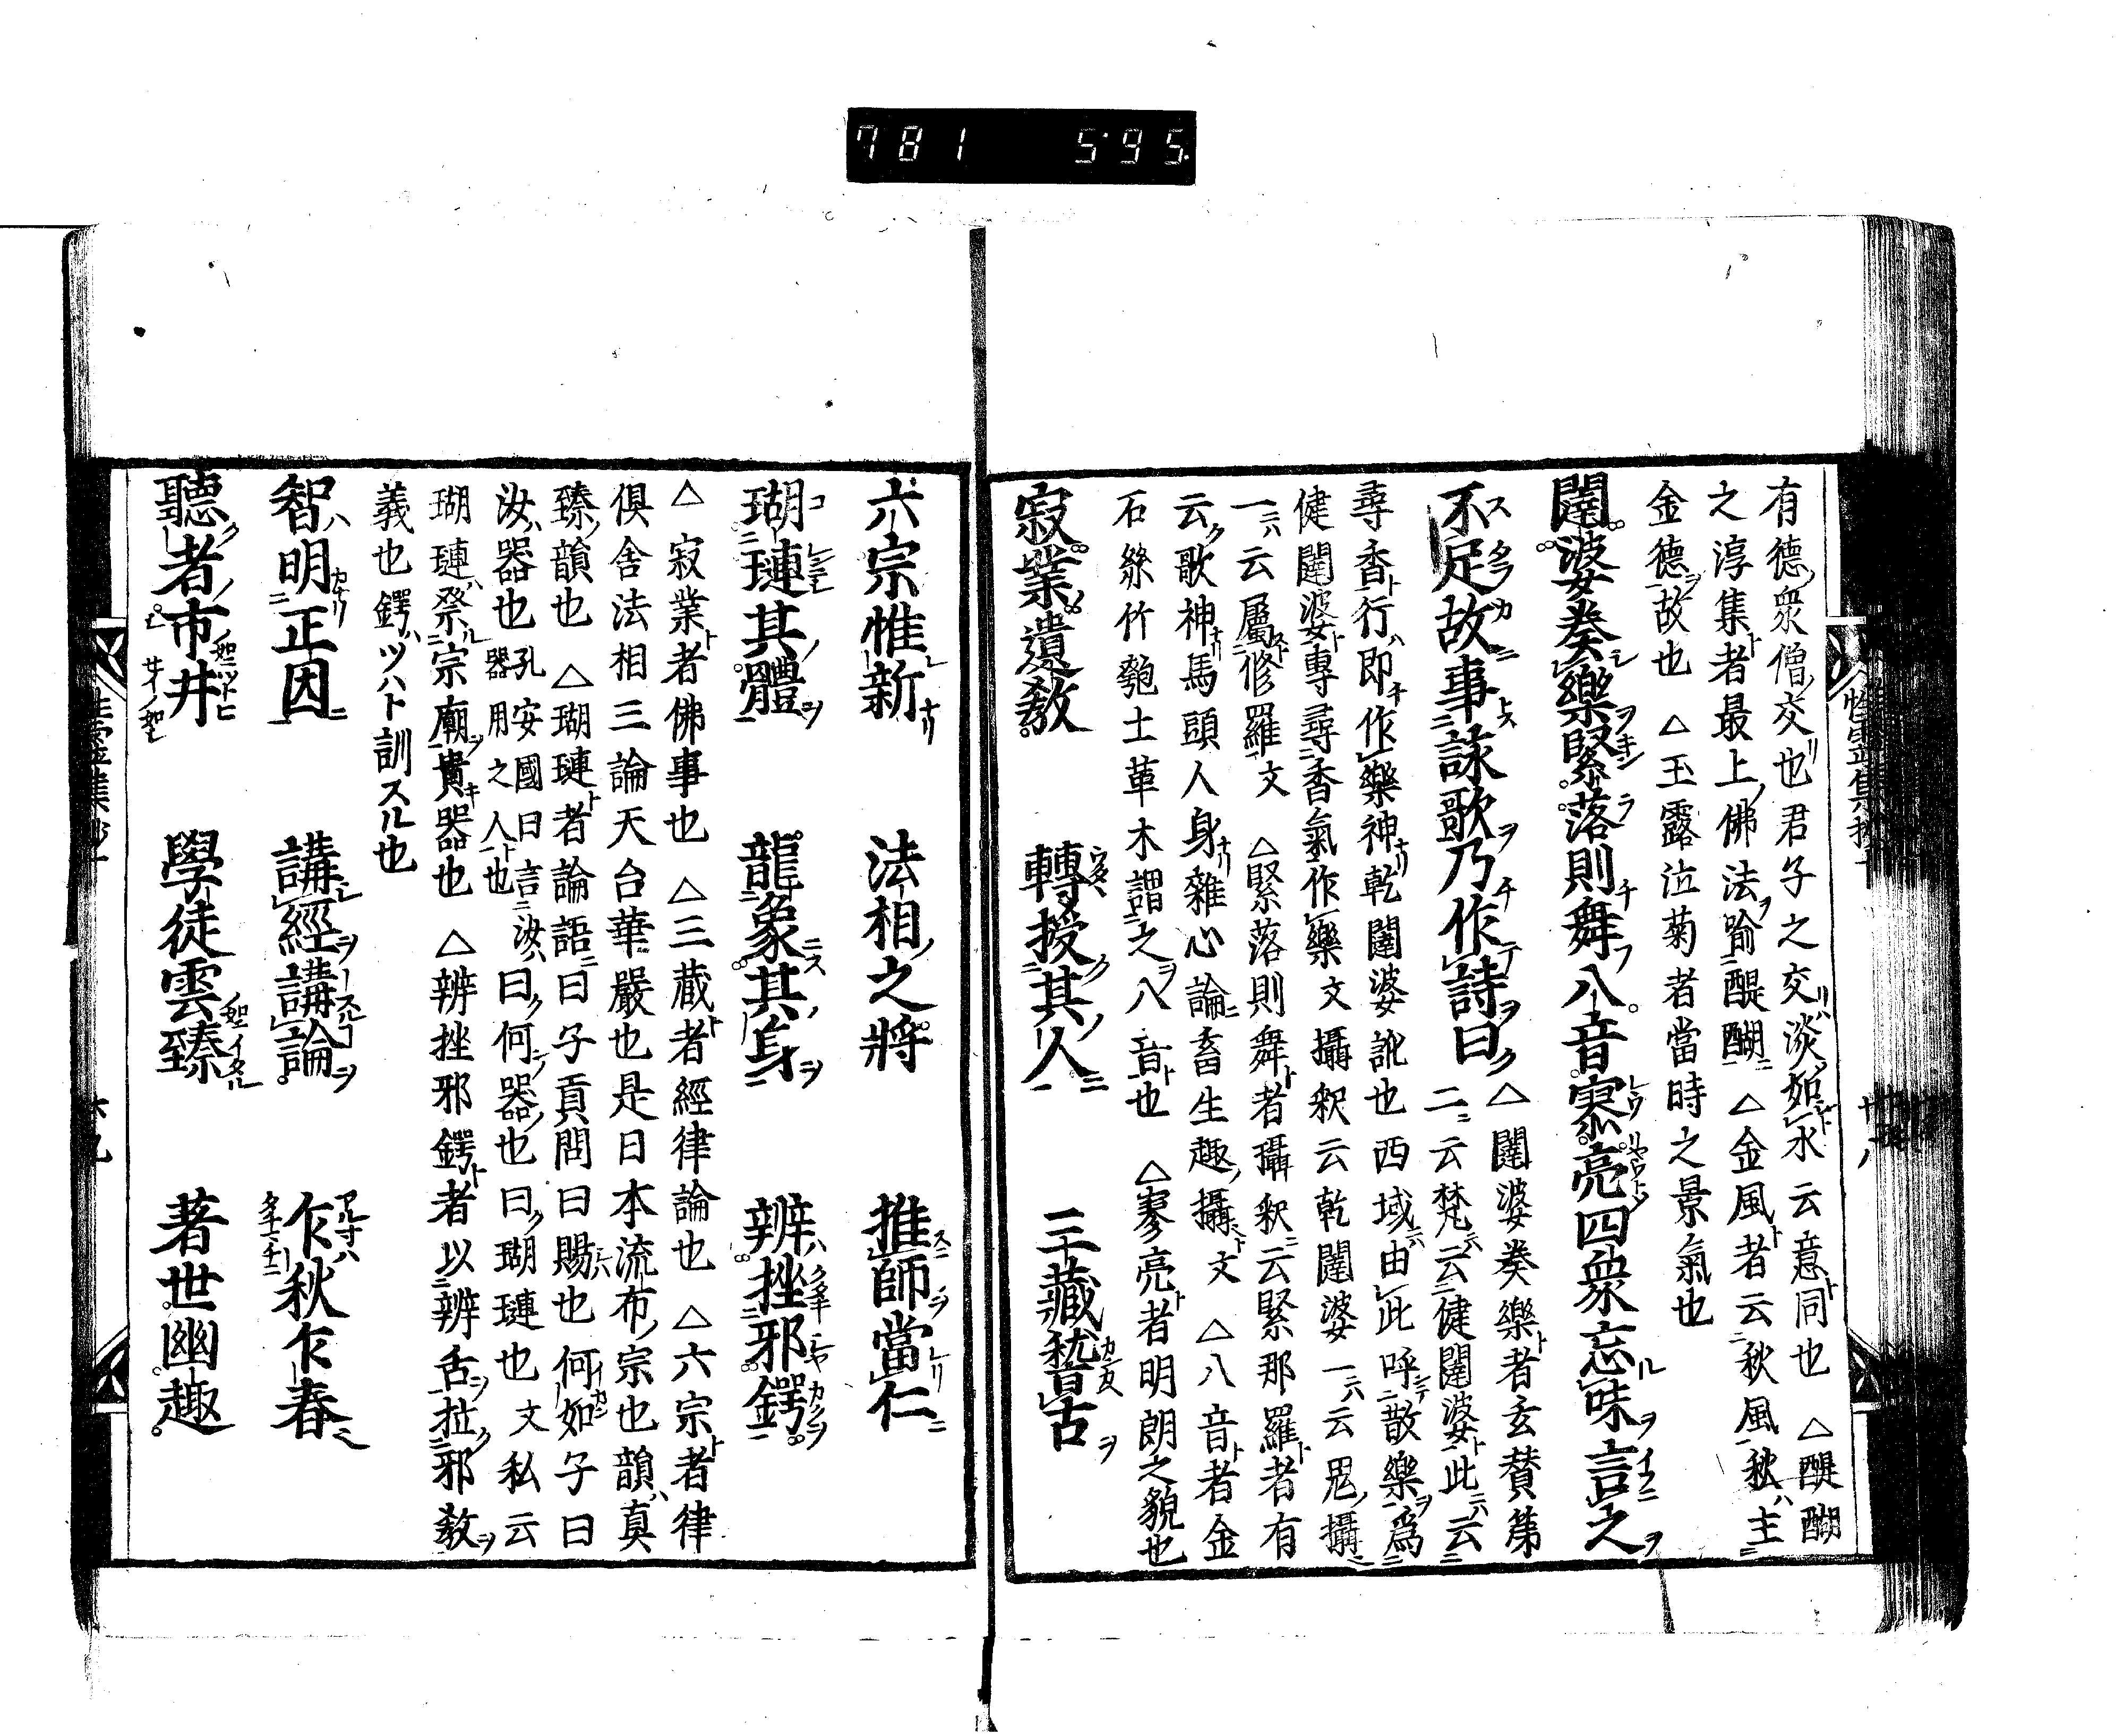 781 5.95.
有德衆僧交也君子之交淡如水云意同也 △醍醐
之淳集者最上佛法喩醍醐 △金風者云秋風秋主
金德故也 △玉露泣菊者當時之景氣也
闥婆奏樂緊落則舞八音寥亮四衆忘味言之
不足故事詠歌乃作詩曰 △闥婆奏樂者玄賛第
二云梵云健闥婆此云
尋香行即作樂神乾闥婆訛也西域由此呼散樂爲
健闥婆專尋香氣作樂文攝釈云乾闥婆一云
一云屬修羅文 △緊落則舞者攝釈云緊那羅者有
云歌神馬頭人身雜心論畜生趣攝文 △八音者金
石絲竹匏土革木謂之八音也 △寥亮者明朗之貌也
寂業遺教 轉授其人 三藏稽古
六宗惟新 法相之將 推師當仁
瑚璉其體 龍象其身 辨挫邪鍔
△寂業者佛事也 △三藏者經律論也 △六宗者律
俱舎法相三論天台華嚴也是日本流布宗也韻真
臻韻也 △瑚璉者論語曰子貢問曰賜也何如子曰
汝器也孔安國曰言汝器用之人也曰何器也曰瑚璉也文私云
瑚璉祭宗廟貴器也 △辨挫邪鍔者以辨舌拉邪教
義也鍔ツハト訓スル也
智明正因 講經講論 乍秋乍春
聽者市井 學徒雲臻 著世幽趣